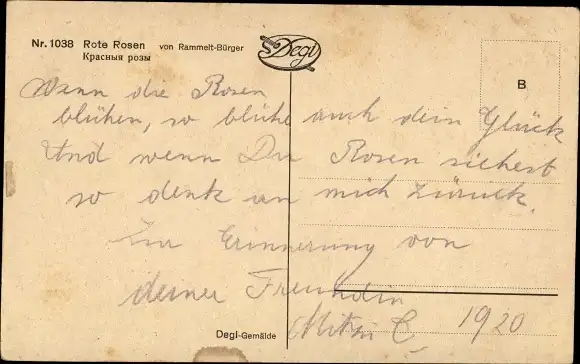 Nr. 1038 Rote Rosen von Rammelt-Bürger
Красныя розы
Degi
B
Wenn die Rosen
blühen, so blühe auch dein Glück
Und wenn Du Rosen siehest
so denk an mich zurück.
Zur Erinnerung von
deiner Freundin
Mitzi C
1920
Degi-Gemälde